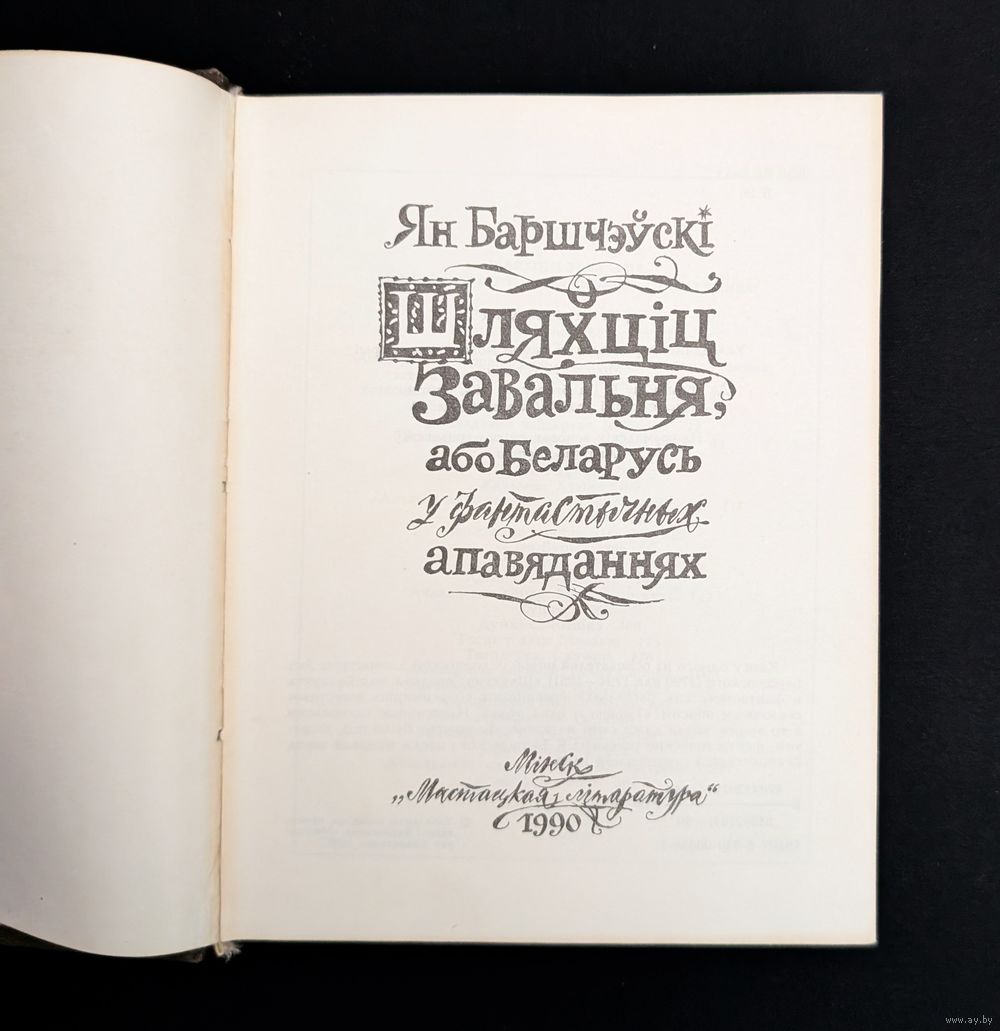 Ян Баршчэўскі
Шляхціц
Завальня,
або Беларусь
у фантастычных
апавяданнях
Мінск
„Мастацкая літаратура“
1990
www.ay.by